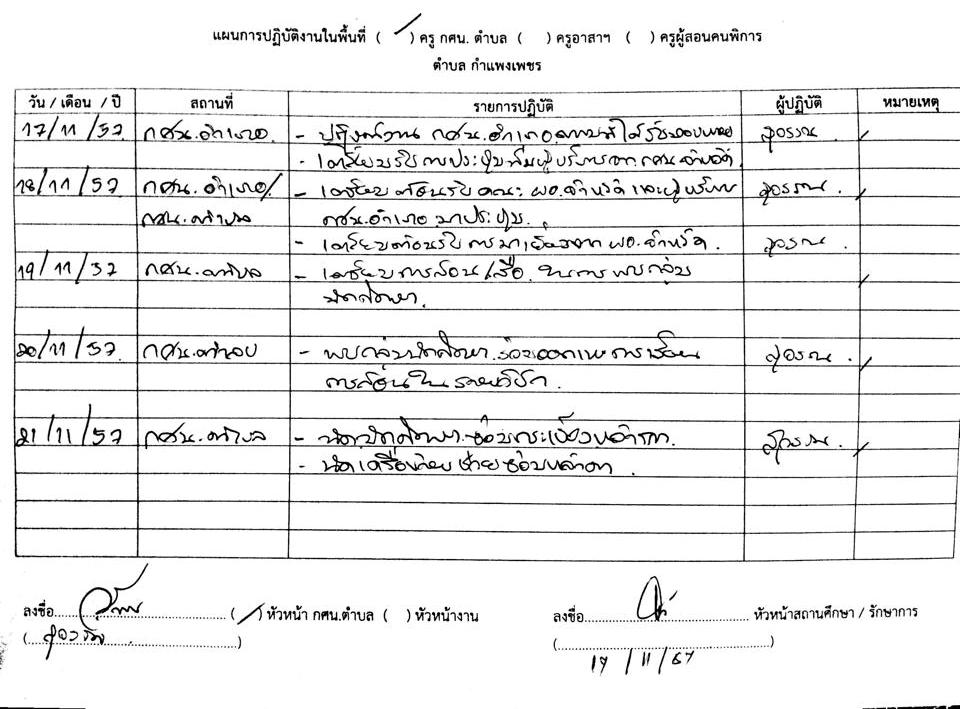 แผนการปฏิบัติงานในพื้นที่ ( / ) ครู กศน. ตำบล ( ) ครูอาสาฯ ( ) ครูผู้สอนคนพิการ
ตำบล กำแพงเพชร
วัน / เดือน / ปี สถานที่ รายการปฏิบัติ ผู้ปฏิบัติ หมายเหตุ
17/11/57 กศน.อำเภอ - ปฏิบัติงาน กศน.อำเภอ ตามที่ได้รับมอบหมาย
- เตรียมรับการประชุมทีมผู้บริหารจาก กศน.จังหวัด
18/11/57 กศน.อำเภอ/ - เตรียมต้อนรับ คณะ ผอ.จังหวัด และผู้บริหาร
กศน.ตำบล กศน.อำเภอ มาประชุม.
- เตรียมต้อนรับ การมาเยี่ยมจาก ผอ.จังหวัด.
19/11/57 กศน.ตำบล - เตรียมการสอน/สื่อ ในการพบกลุ่ม
นักศึกษา.
20/11/57 กศน.ตำบล - พบกลุ่มนักศึกษา การเรียน
การสอนใน รายวิชา
21/11/57 กศน.ตำบล - นัดนักศึกษา ซ่อมกระเบื้องหลังคา.
- ซ่อมหลังคา.
ลงชื่อ ( / ) หัวหน้า กศน.ตำบล ( ) หัวหน้างาน ลงชื่อ หัวหน้าสถานศึกษา / รักษาการ
17 / 11 / 57